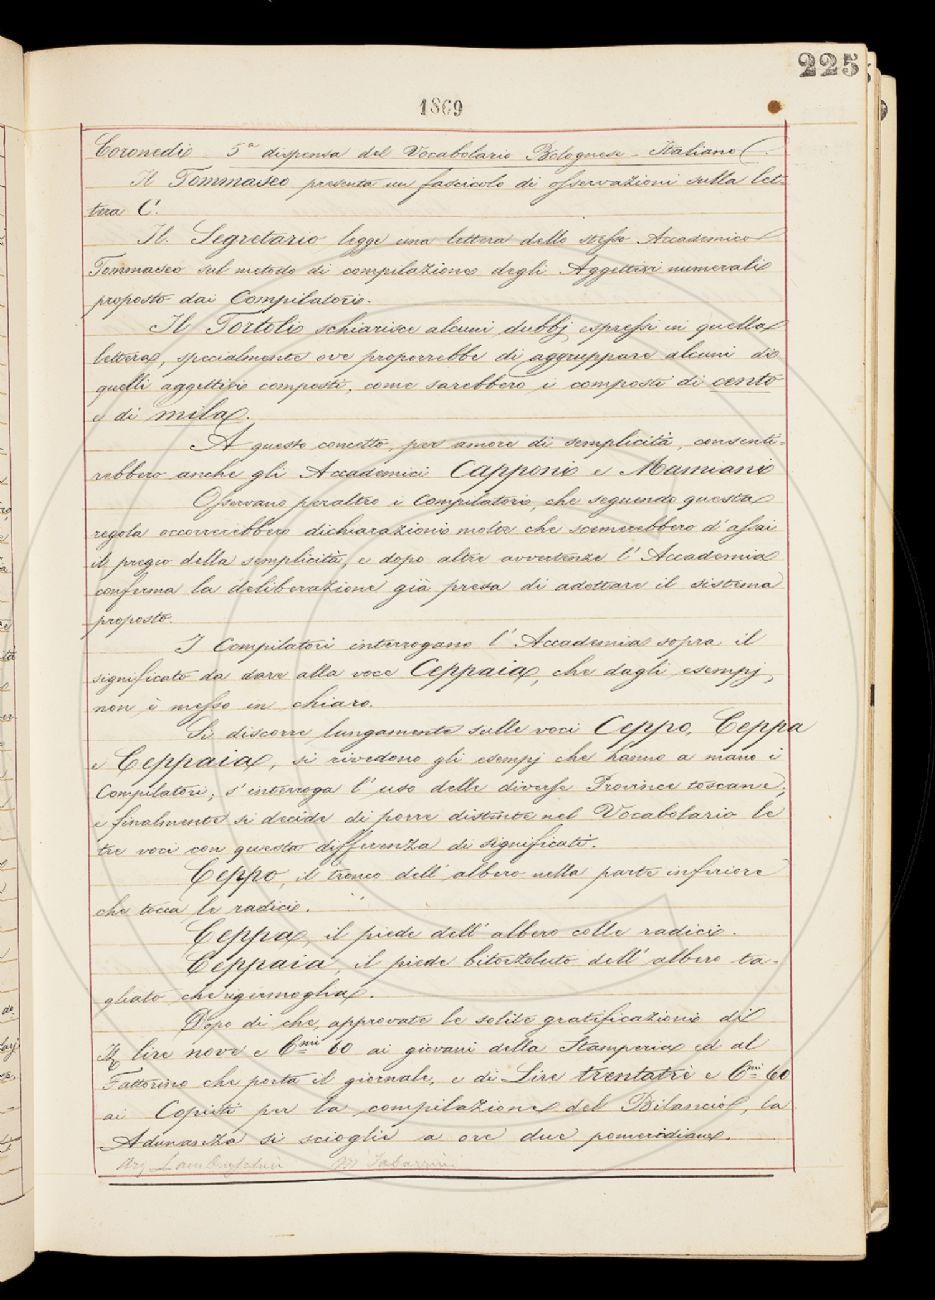 225
1869
Coronedi - 5ª dispensa del Vocabolario Bolognese - Italiano
Il Tommaseo presenta un fascicolo di osservazioni sulla let-
tera C.
Il Segretario legge una lettera dello stesso Accademico
Tommaseo sul metodo di compilazione degli Aggettivi numerali
proposto dai Compilatori.
Il Tortoli schiarisce alcuni dubbj espressi in quella
lettera, specialmente ove proporrebbe di aggruppare alcuni di
quelli aggettivi composti, come sarebbero i composti di cento
e di mila.
A questo concetto, per amore di semplicità, consenti-
rebbero anche gli Accademici Capponi e Mamiani
Osservano peraltro i Compilatori, che seguendo questa
regola occorrerebbero dichiarazioni molte che scemerebbero d'assai
il pregio della semplicità, e dopo altre avvertenze l'Accademia
conferma la deliberazione già presa di adottare il sistema
proposto.
I Compilatori interrogano l'Accademia sopra il
significato da dare alla voce Ceppaia, che dagli esempj,
non è messo in chiaro.
Si discorre lungamente sulle voci Ceppo, Ceppa
e Ceppaia, si rivedono gli esempj che hanno a mano i
Compilatori, s'interroga l'uso delle diverse Province toscane;
e finalmente si decide di porre distinte nel Vocabolario le
tre voci con questa differenza di significati.
Ceppo, il tronco dell'albero nella parte inferiore
che tocca le radici.
Ceppa, il piede dell'albero colle radici.
Ceppaia, il piede bitorzoluto dell'albero ta-
gliato che rigermoglia.
Dopo di che, approvate le solite gratificazioni di
lire nove e Cmi 60 ai giovani della Stamperia ed al
Fattorino che porta il giornale, e di Lire trentatrè e Cmi 60
ai Copisti per la compilazione del Bilancio, la
Adunanza si scioglie a ore due pomeridiane.
Lambruschini M Tabarrini